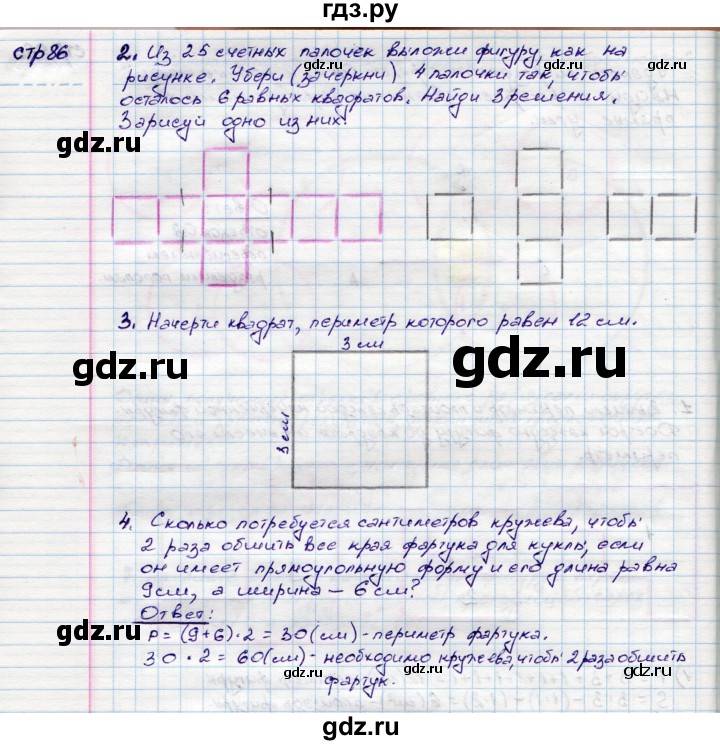 гдз.ру
стр 86
2. Из 25 счетных палочек выложи фигуру, как на
рисунке. Убери (зачеркни) 4 палочки так, чтобы
осталось 6 равных квадратов. Найди 3 решения.
Зарисуй одно из них.
gdz.ru
gdz.ru
gdz.ru
gdz.ru
3. Начерти квадрат, периметр которого равен 12 см.
gdz.ru
gdz.ru
3 см
3 см
4. Сколько потребуется сантиметров кружева, чтобы
2 раза обшить все края фартука для куклы, если
он имеет прямоугольную форму и его длина равна
9см, а ширина – 6 см?
gdz.ru
gdz.ru
Ответ:
P = (9+6)·2 = 30(см) - периметр фартука.
30 · 2 = 60(см) - необходимо кружева, чтобы 2 раза обшить
фартук.
gdz.ru
gdz.ru
gdz.ru